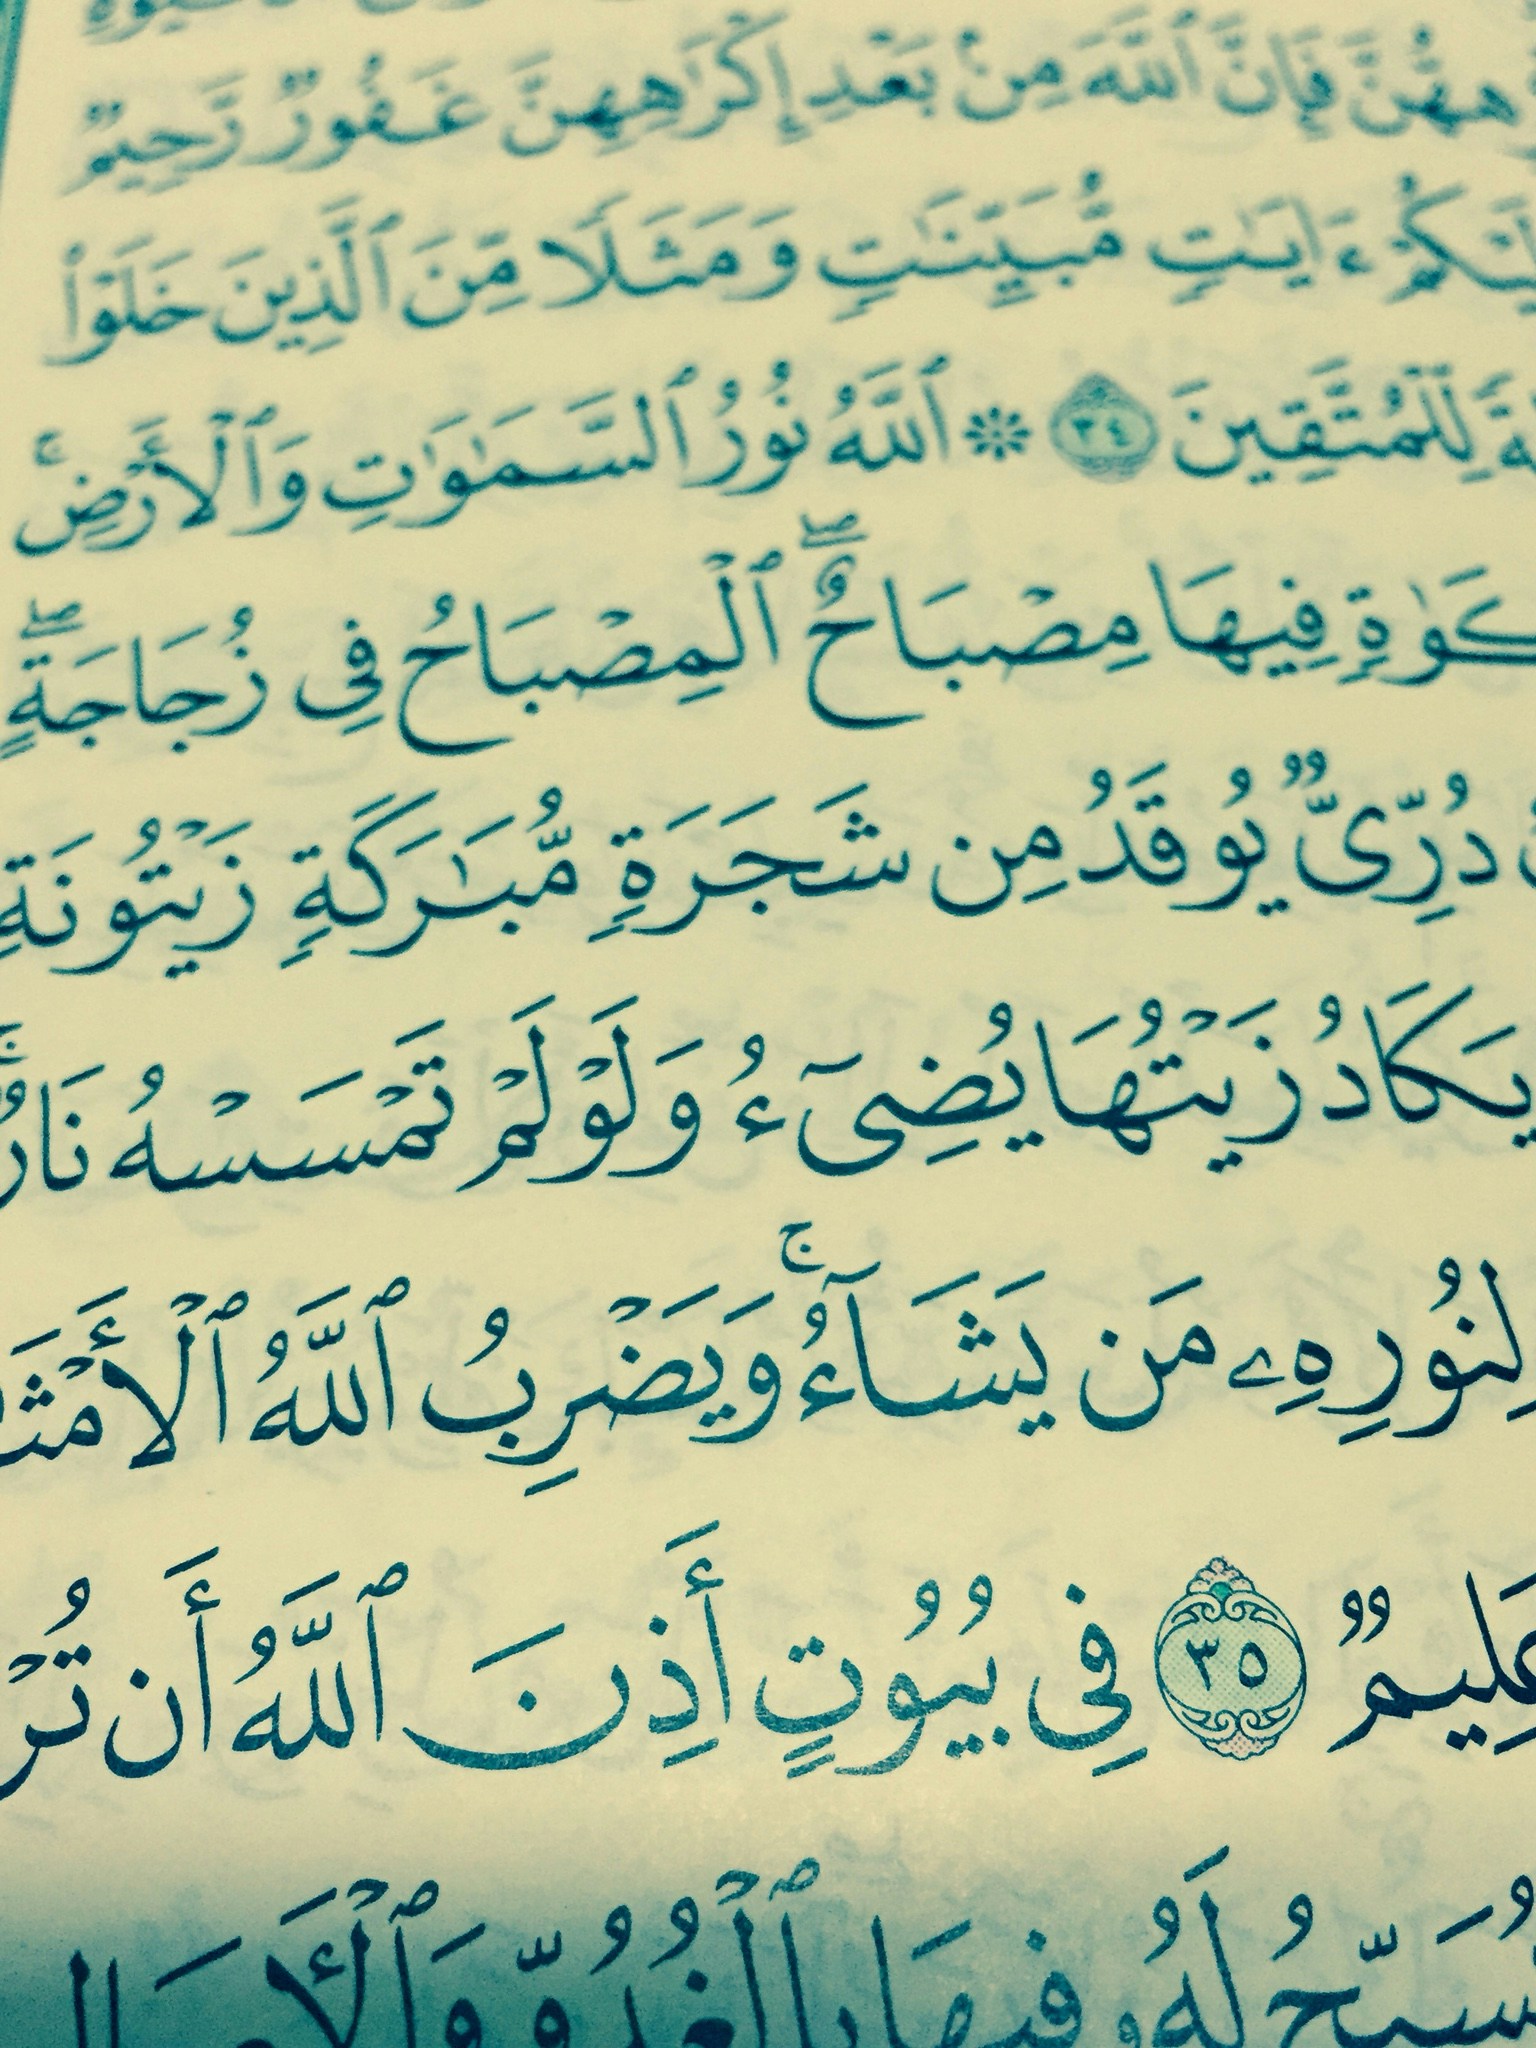 هِهُّنَّ فَإِنَّ ٱللَّهَ مِنۢ بَعْدِ إِكْرَٰهِهِنَّ غَفُورٌ رَّحِيمٌ
ءَايَٰتٍ مُّبَيِّنَٰتٍ وَمَثَلًا مِّنَ ٱلَّذِينَ خَلَوْا۟
لِّلْمُتَّقِينَ ٣٤ ۞ ٱللَّهُ نُورُ ٱلسَّمَٰوَٰتِ وَٱلْأَرْضِۚ
كَوٰةٍ فِيهَا مِصْبَاحٌۖ ٱلْمِصْبَاحُ فِى زُجَاجَةٍۖ
دُرِّىٌّ يُوقَدُ مِن شَجَرَةٍ مُّبَٰرَكَةٍ زَيْتُونَةٍ
يَكَادُ زَيْتُهَا يُضِىٓءُ وَلَوْ لَمْ تَمْسَسْهُ نَارٌۚ
لِنُورِهِۦ مَن يَشَآءُۚ وَيَضْرِبُ ٱللَّهُ ٱلْأَمْثَا
عَلِيمٌ ٣٥ فِى بُيُوتٍ أَذِنَ ٱللَّهُ أَن تُرْ
يُسَبِّحُ لَهُۥ فِيهَا بِٱلْغُدُوِّ وَٱلْءَاصَالِ